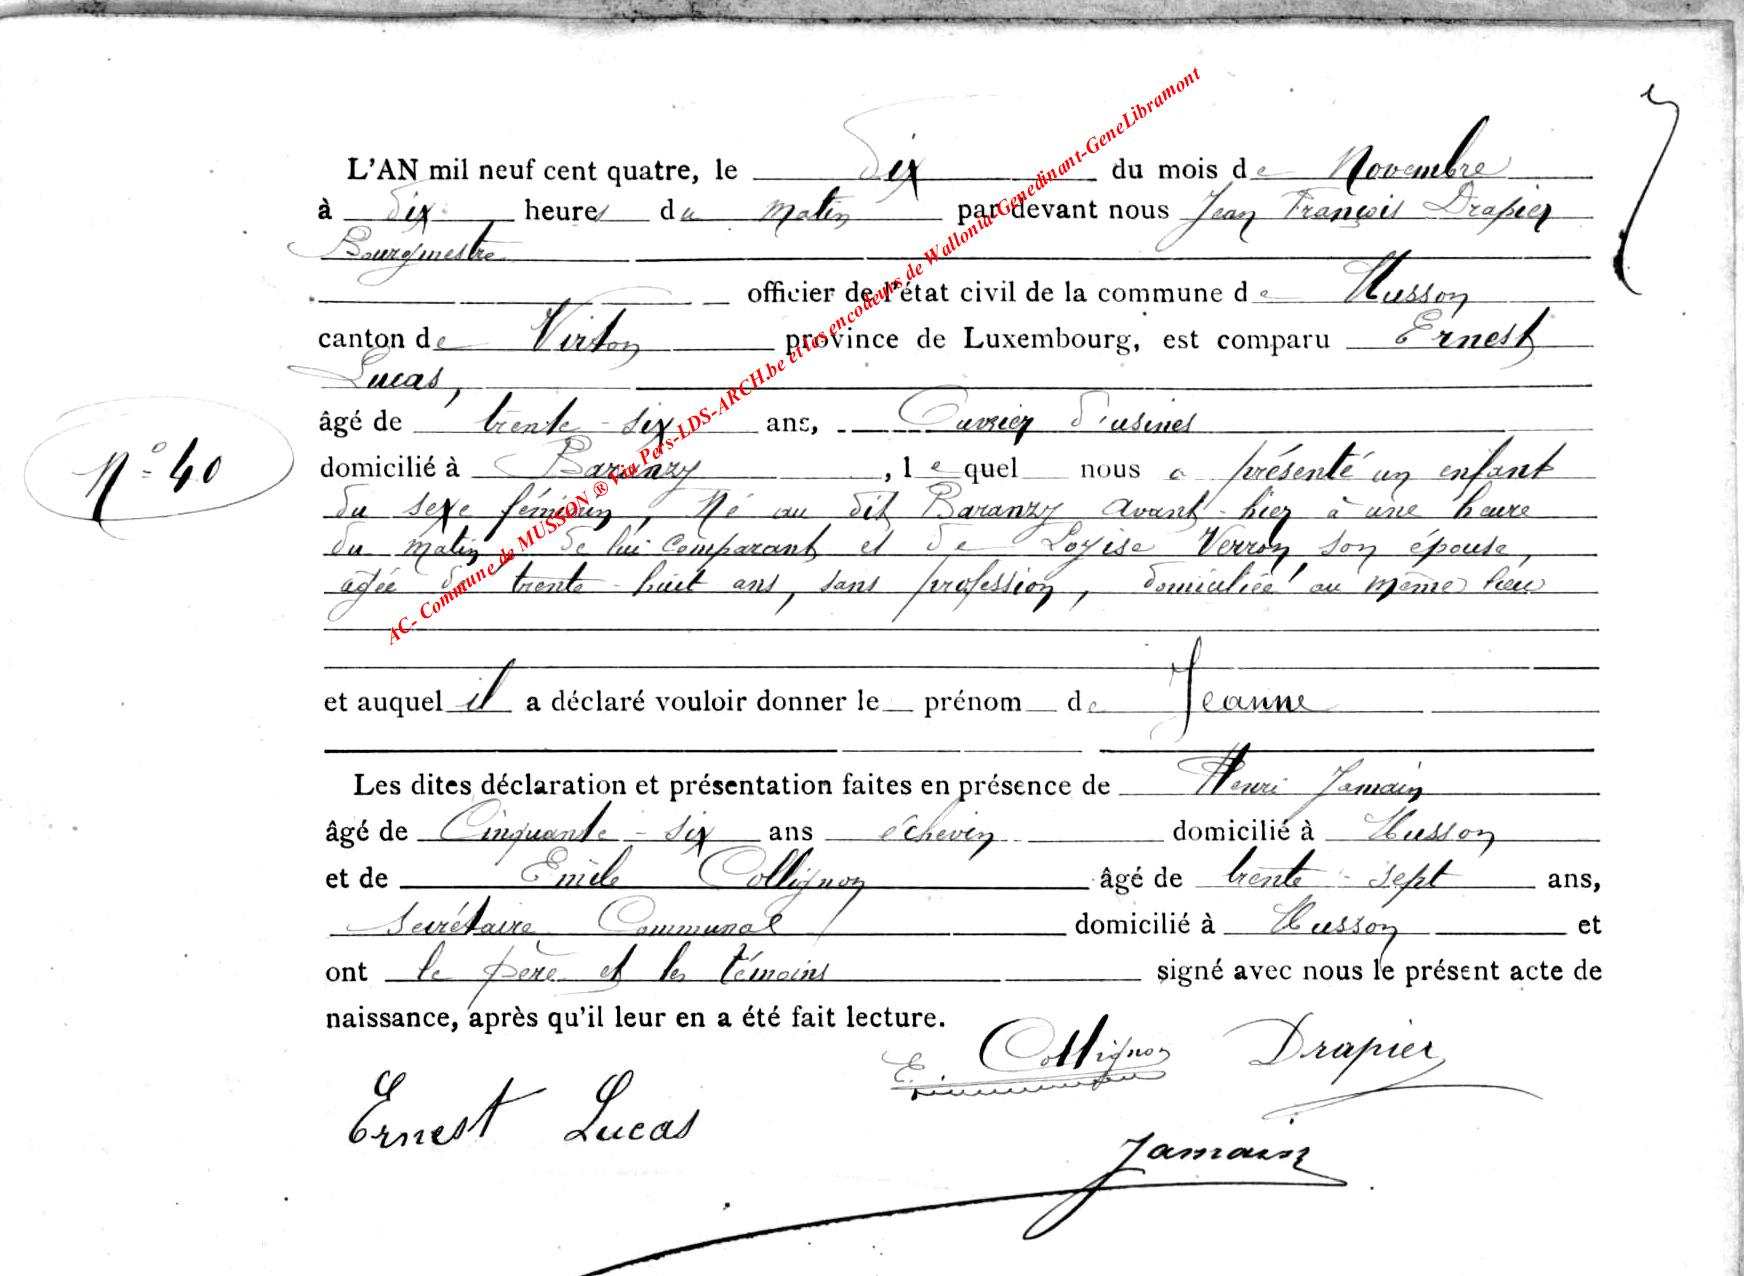 L'AN mil neuf cent quatre, le Dix du mois de Novembre
à Dix heures du matin par devant nous Jean François Drapier
Bourgmestre
officier de l'état civil de la commune de Musson
canton de Virton province de Luxembourg, est comparu Ernest
Lucas,
âgé de trente-six ans, Ouvrier d'usines
domicilié à Baranzy, lequel nous a présenté un enfant
N° 40
du sexe féminin, Né au dit Baranzy avant-hier à une heure
du matin de lui comparant et de Loyise Verron, son épouse,
agée de trente-huit ans, sans profession, domiciliée au même lieu
et auquel il a déclaré vouloir donner le prénom de Jeanne
Les dites déclaration et présentation faites en présence de Henri Jamain
âgé de Cinquante-six ans échevin domicilié à Musson
et de Emile Collignon âgé de trente-sept ans,
secrétaire Communal domicilié à Musson et
ont le père et les témoins signé avec nous le présent acte de
naissance, après qu'il leur en a été fait lecture.
E. Collignon Drapier
Ernest Lucas
Jamain
AC- Commune de MUSSON ® Via Pers-LDS-ARCH.be et les encodeurs de Wallonia-Genedinant-GeneLibramont